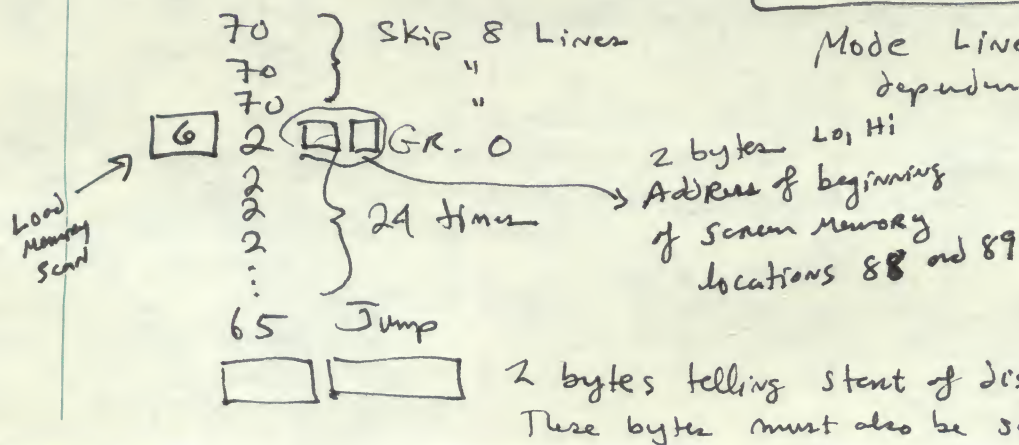 70 } Skip 8 Lines
70 "
70 "
Mode Line
depend
6 2 GR. 0
2
2 24 times
2
:
Load
Memory
Scan
2 bytes Lo, Hi
Address of beginning
of screen memory
locations 88 and 89
65 Jump
2 bytes telling start of dis
These bytes must also be s